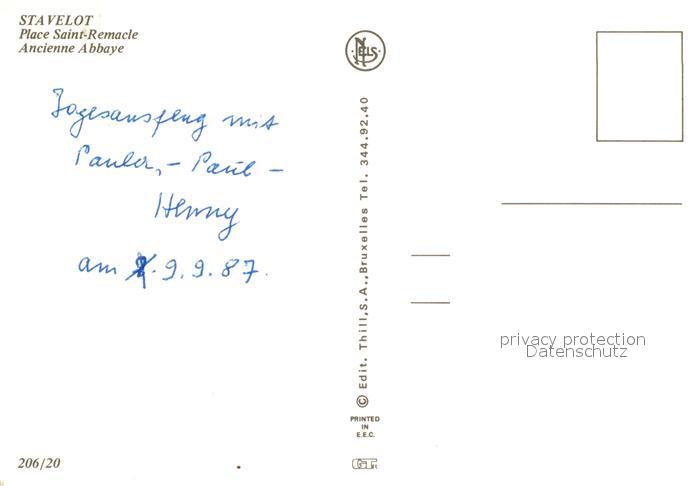 STAVELOT
Place Saint-Remacle
Ancienne Abbaye
NELS
Tagesausflug mit
Paula, - Paul -
Henny
am 9.9.87.
© Edit. Thill, S.A., Bruxelles Tel. 344.92.40
PRINTED
IN
E.E.C.
privacy protection
Datenschutz
206/20